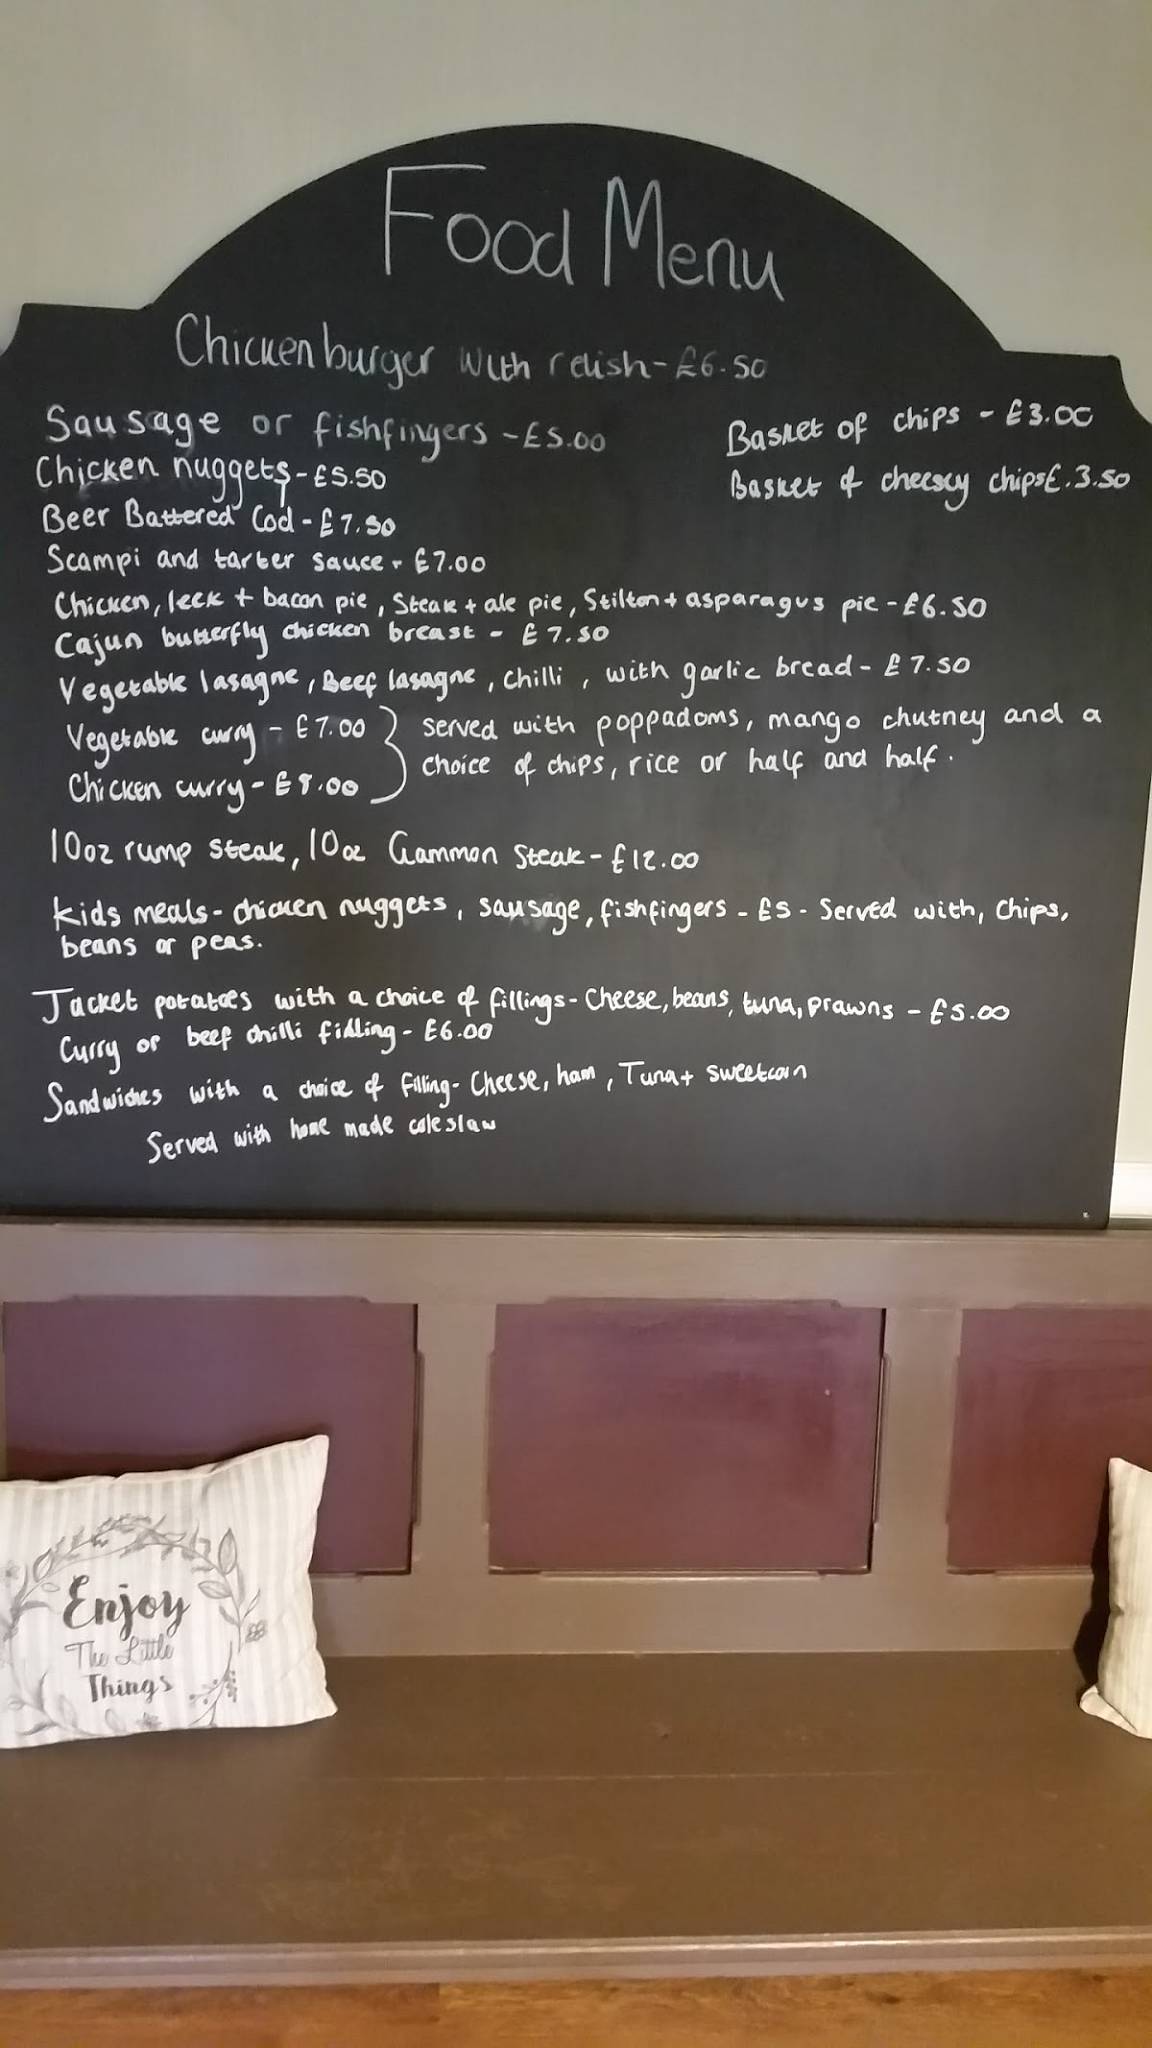 Food Menu
Chicken burger with relish - £6.50
Sausage or fishfingers - £5.00
Basket of chips - £3.00
Chicken nuggets - £5.50
Basket of cheesey chips £.3.50
Beer Battered Cod - £7.50
Scampi and tarter sauce - £7.00
Chicken, leek + bacon pie, Steak + ale pie, Stilton + asparagus pie - £6.50
Cajun butterfly chicken breast - £7.50
Vegetable lasagne, Beef lasagne, chilli, with garlic bread - £7.50
Vegetable curry - £7.00
Chicken curry - £8.00
served with poppadoms, mango chutney and a
choice of chips, rice or half and half.
10oz rump steak, 10oz Gammon Steak - £12.00
Kids meals - chicken nuggets, sausage, fishfingers - £5 - Served with, chips,
beans or peas.
Jacket potatoes with a choice of fillings - Cheese, beans, tuna, prawns - £5.00
Curry or beef chilli filling - £6.00
Sandwiches with a choice of filling - Cheese, ham, Tuna + sweetcorn
Served with home made coleslaw
Enjoy
The Little
Things